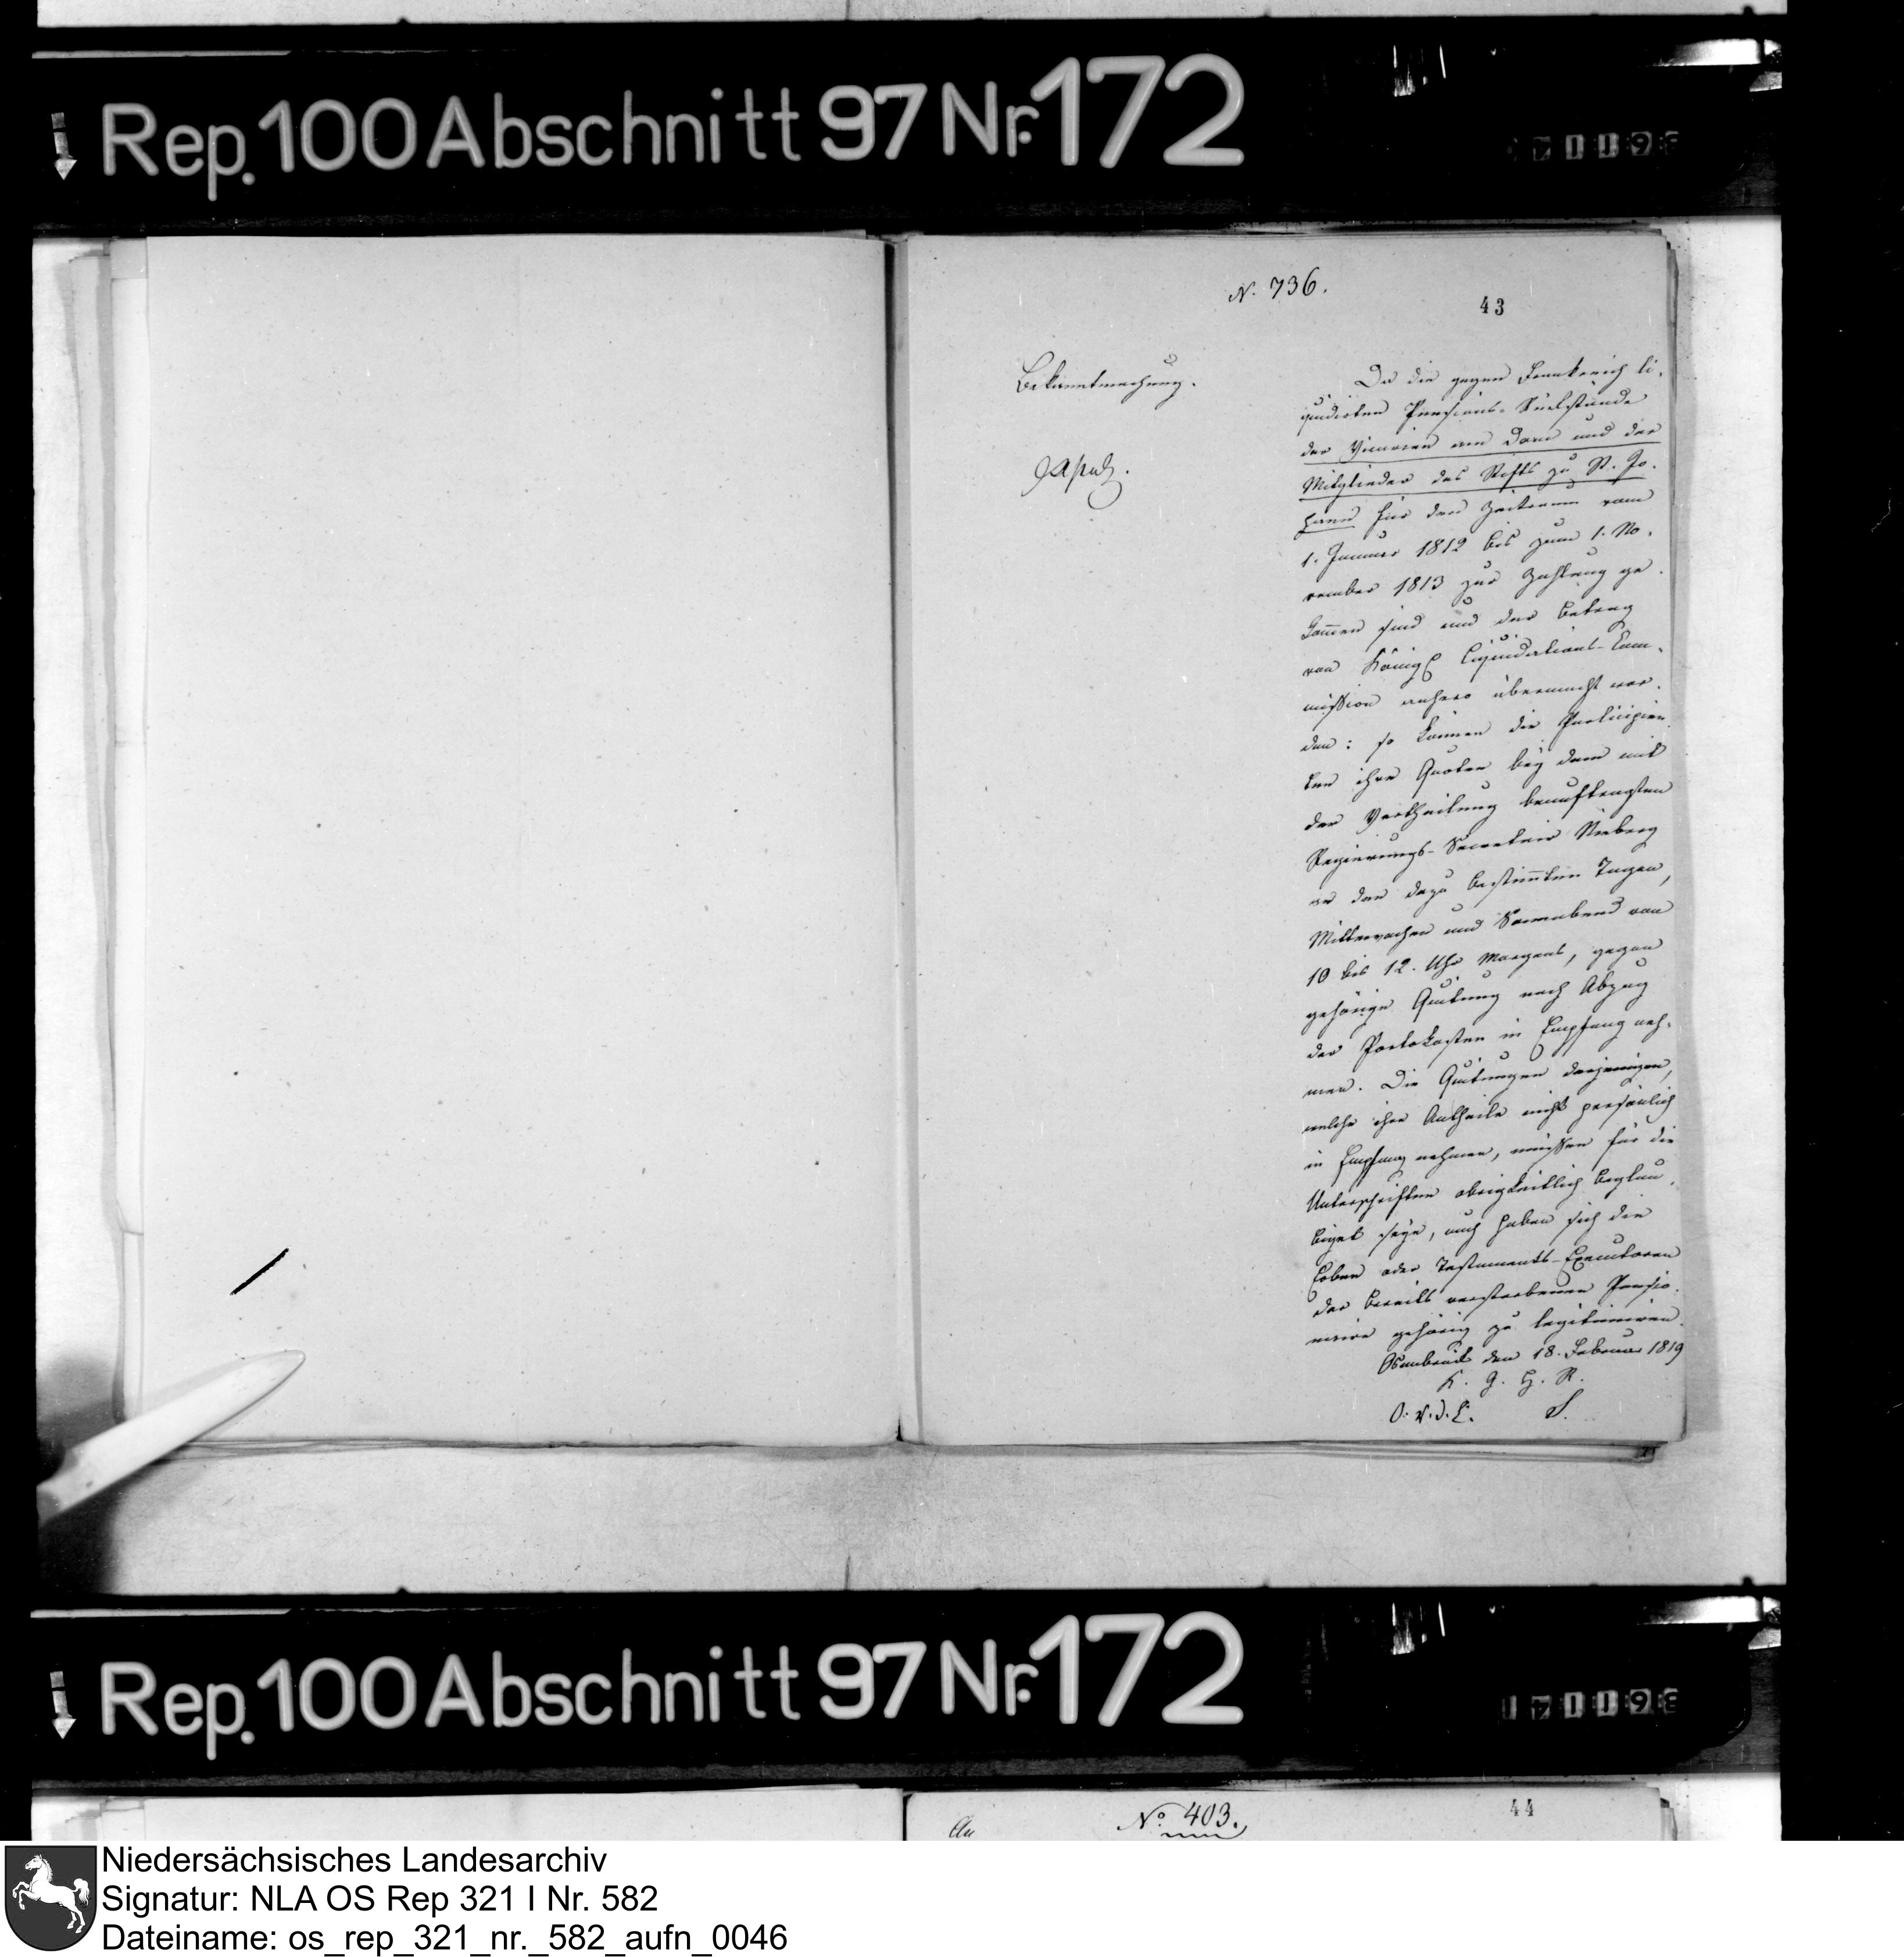 Rep. 100 Abschnitt 97 Nr. 172
N. 736.
43
Bekanntmachung.
Da die gegen Frankreich li-
quidirten Pensions-Rückstände
der Vicarien am Dom und der
Mitglieder des Stifts zu St. Jo-
hann für den Zeitraum vom
1. Januar 1812 bis zum 1. No-
vember 1813 zur Zahlung ge-
kom̅en sind und der Betrag
von Königl Liquidations-Com-
mission anhero übermacht wor-
den: so können die Participien-
ten ihre Quoten bey dem mit
der Vertheilung beauftragten
Regierungs-Secretair Nieberg
an den dazu bestim̅ten Tagen,
Mittewochen und Sonnabend von
10 bis 12. Uhr Morgens, gegen
gehörige Quitung nach Abzug
der Portokosten in Empfang neh-
men. Die Quitungen derjenigen,
welche ihre Antheile nicht persönlich
in Empfang nehmen, müssen für die
Unterschriften obrigkeitlich beglau-
bigt seyn, auch haben sich die
Erben oder Testaments-Executoren
der bereits verstorbenen Pensio-
naire gehörig zu legitimiren.
Osnabrück den 18. Februar 1819
K. G. H. R.
O. v. d. L. S.
Rep. 100 Abschnitt 97 Nr. 172
44
No. 403.
An
Niedersächsisches Landesarchiv
Signatur: NLA OS Rep 321 I Nr. 582
Dateiname: os_rep_321_nr._582_aufn_0046